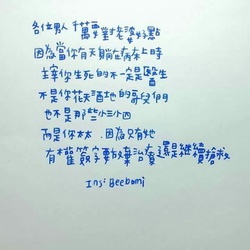 各位男人 千萬要對老婆好點
因為當你有天躺在病床上時
主宰你生死的不一定是醫生
不是你花天酒地的哥兒們
也不是那些小三小四
而是你太太．因為只有她
有權簽字要放棄治療還是繼續搶救
Ins: Beebomi